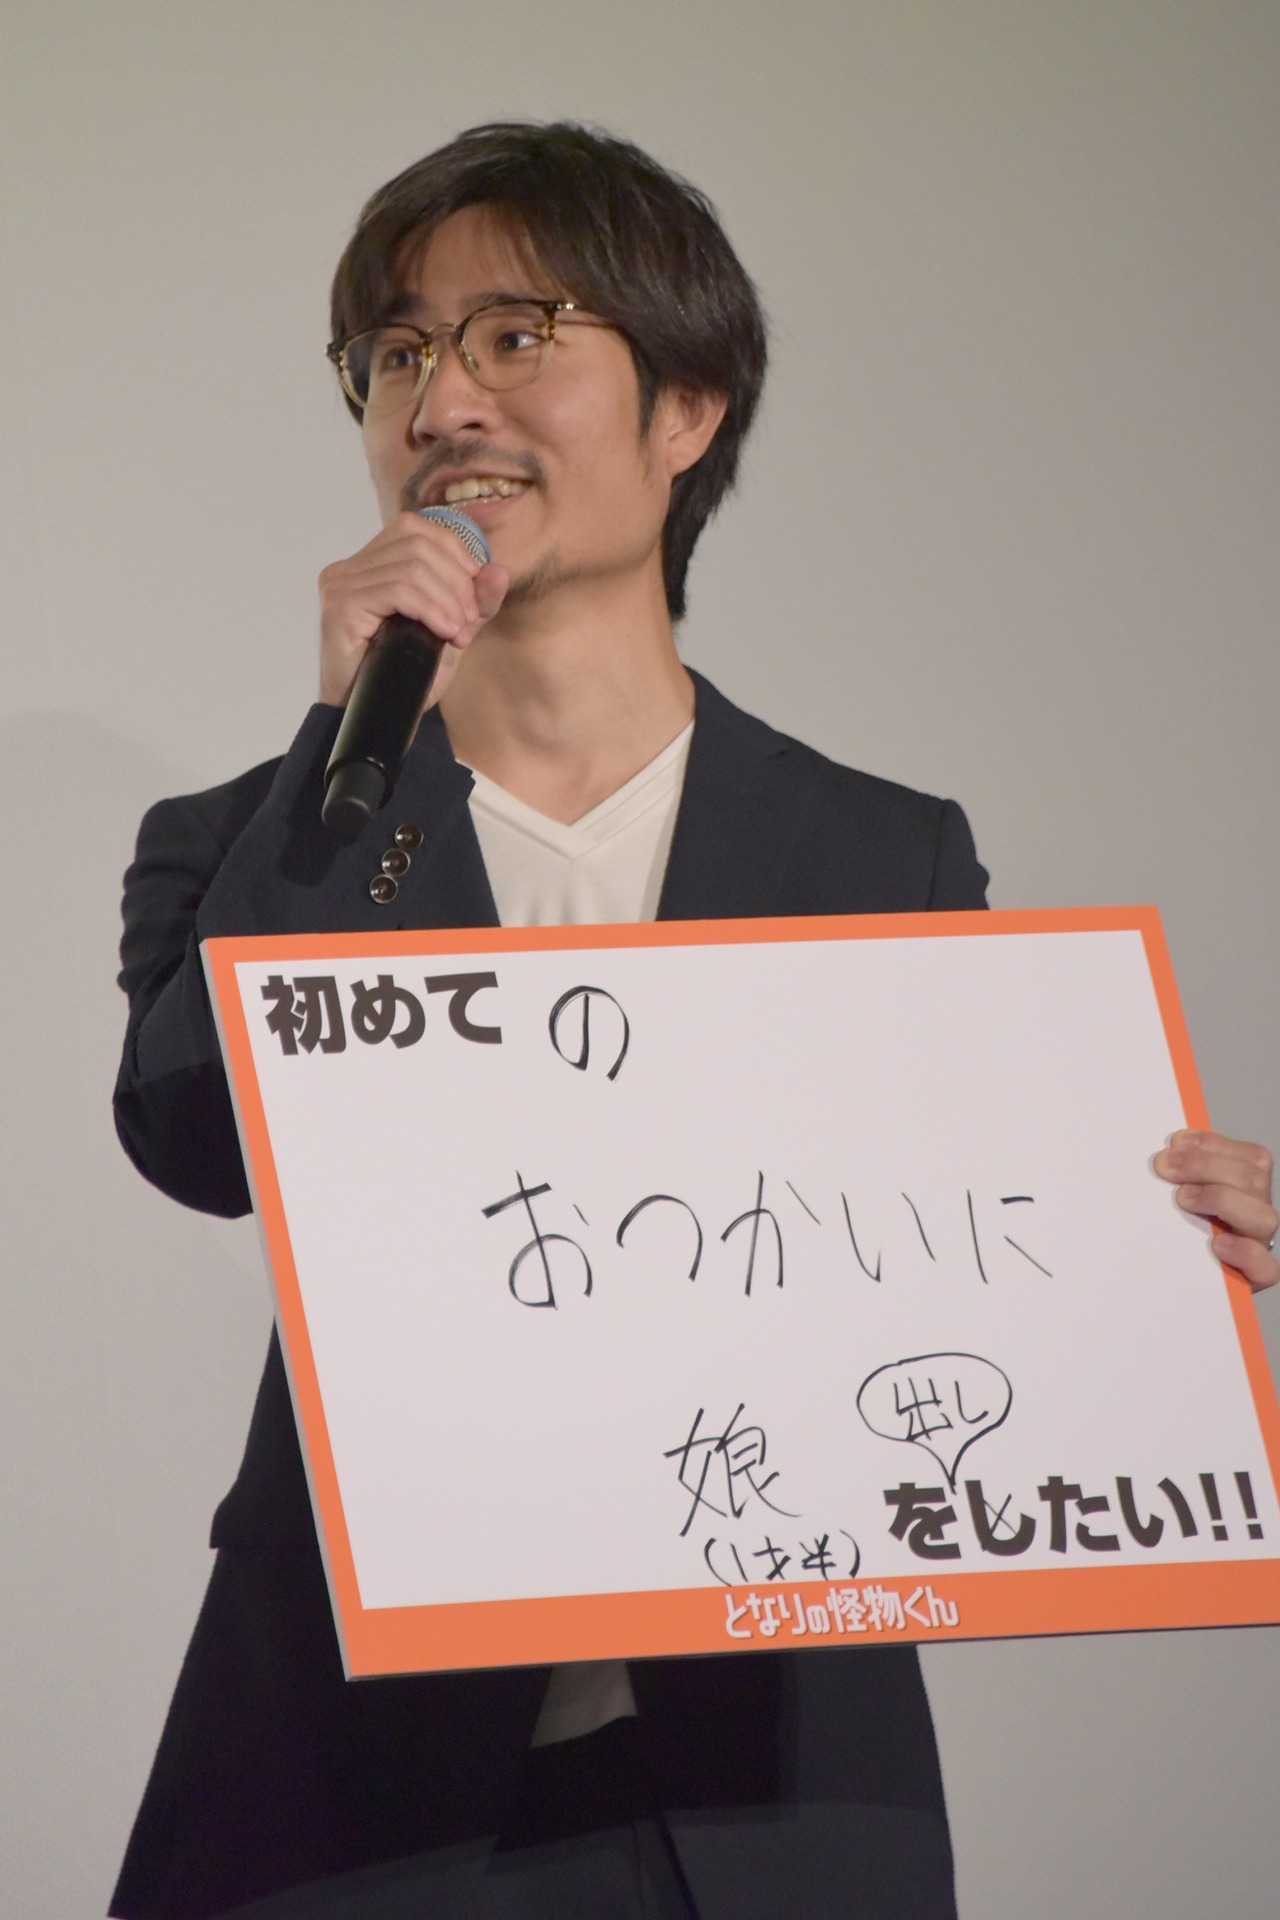 初めての
おつかいに
出し
娘をしたい!!
(1才半)
となりの怪物くん